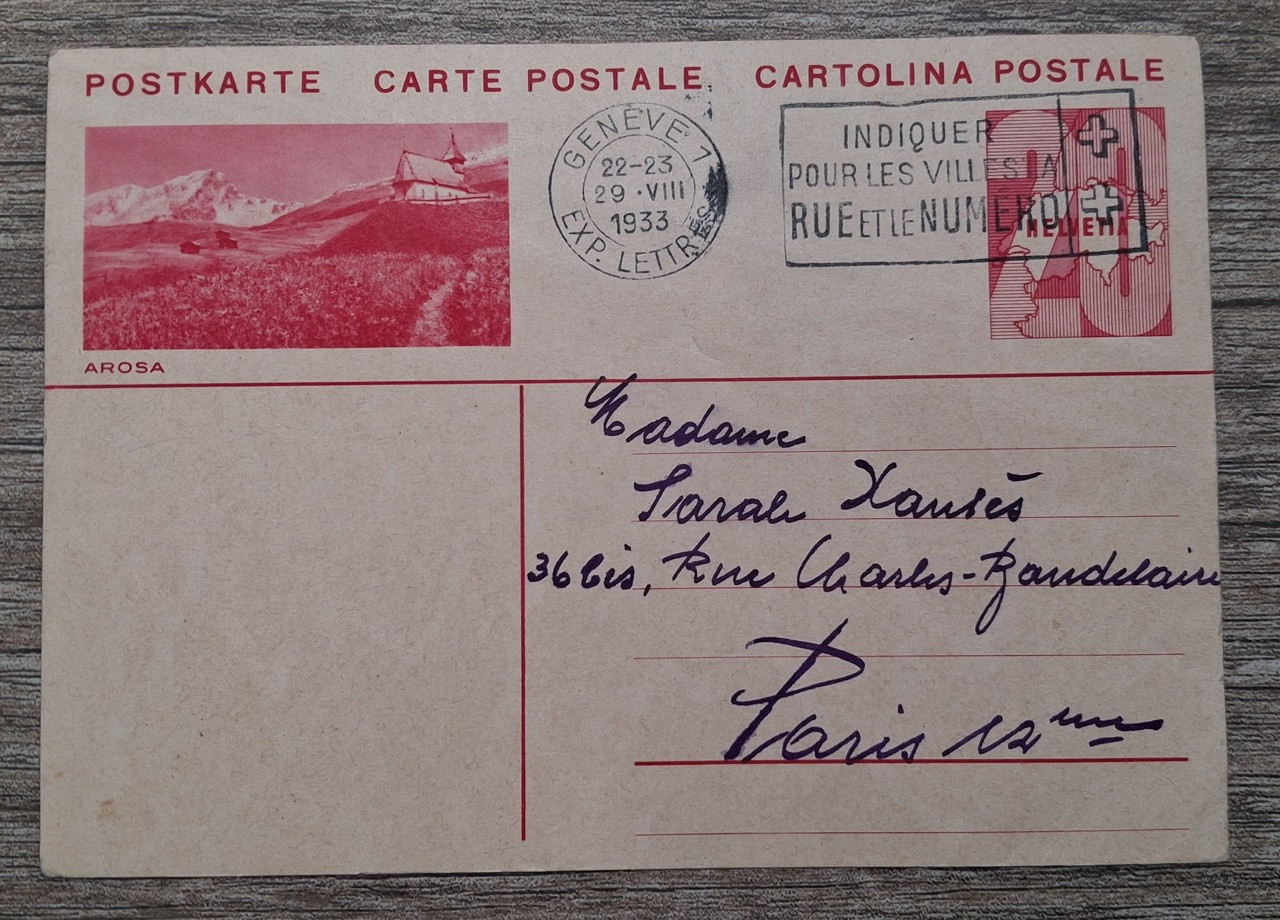 POSTKARTE CARTE POSTALE CARTOLINA POSTALE
GENÈVE 1
22-23
29·VIII
1933
EXP. LETTRES
INDIQUER
POUR LES VILLES LA
RUE ET LE NUMÉRO
HELVETIA
20
AROSA
Madame
Sarah
36 bis, Rue Charles-Baudelaire
Paris 12ème